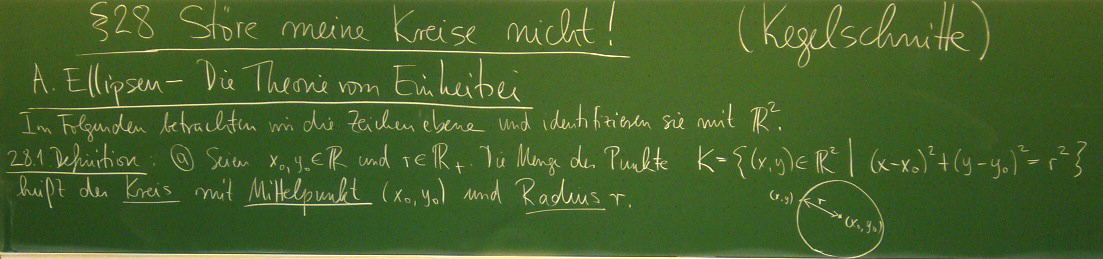 §28 Störe meine Kreise nicht! (Kegelschnitte)
A. Ellipsen – Die Theorie vom Einheitsei
Im Folgenden betrachten wir die Zeichenebene und identifizieren sie mit ℝ².
28.1 Definition: ⓐ Seien x₀, y₀ ∈ ℝ und r ∈ ℝ₊. Die Menge der Punkte K = {(x,y) ∈ ℝ² | (x-x₀)² + (y-y₀)² = r²}
heißt der Kreis mit Mittelpunkt (x₀, y₀) und Radius r.
(x,y) r (x₀, y₀)